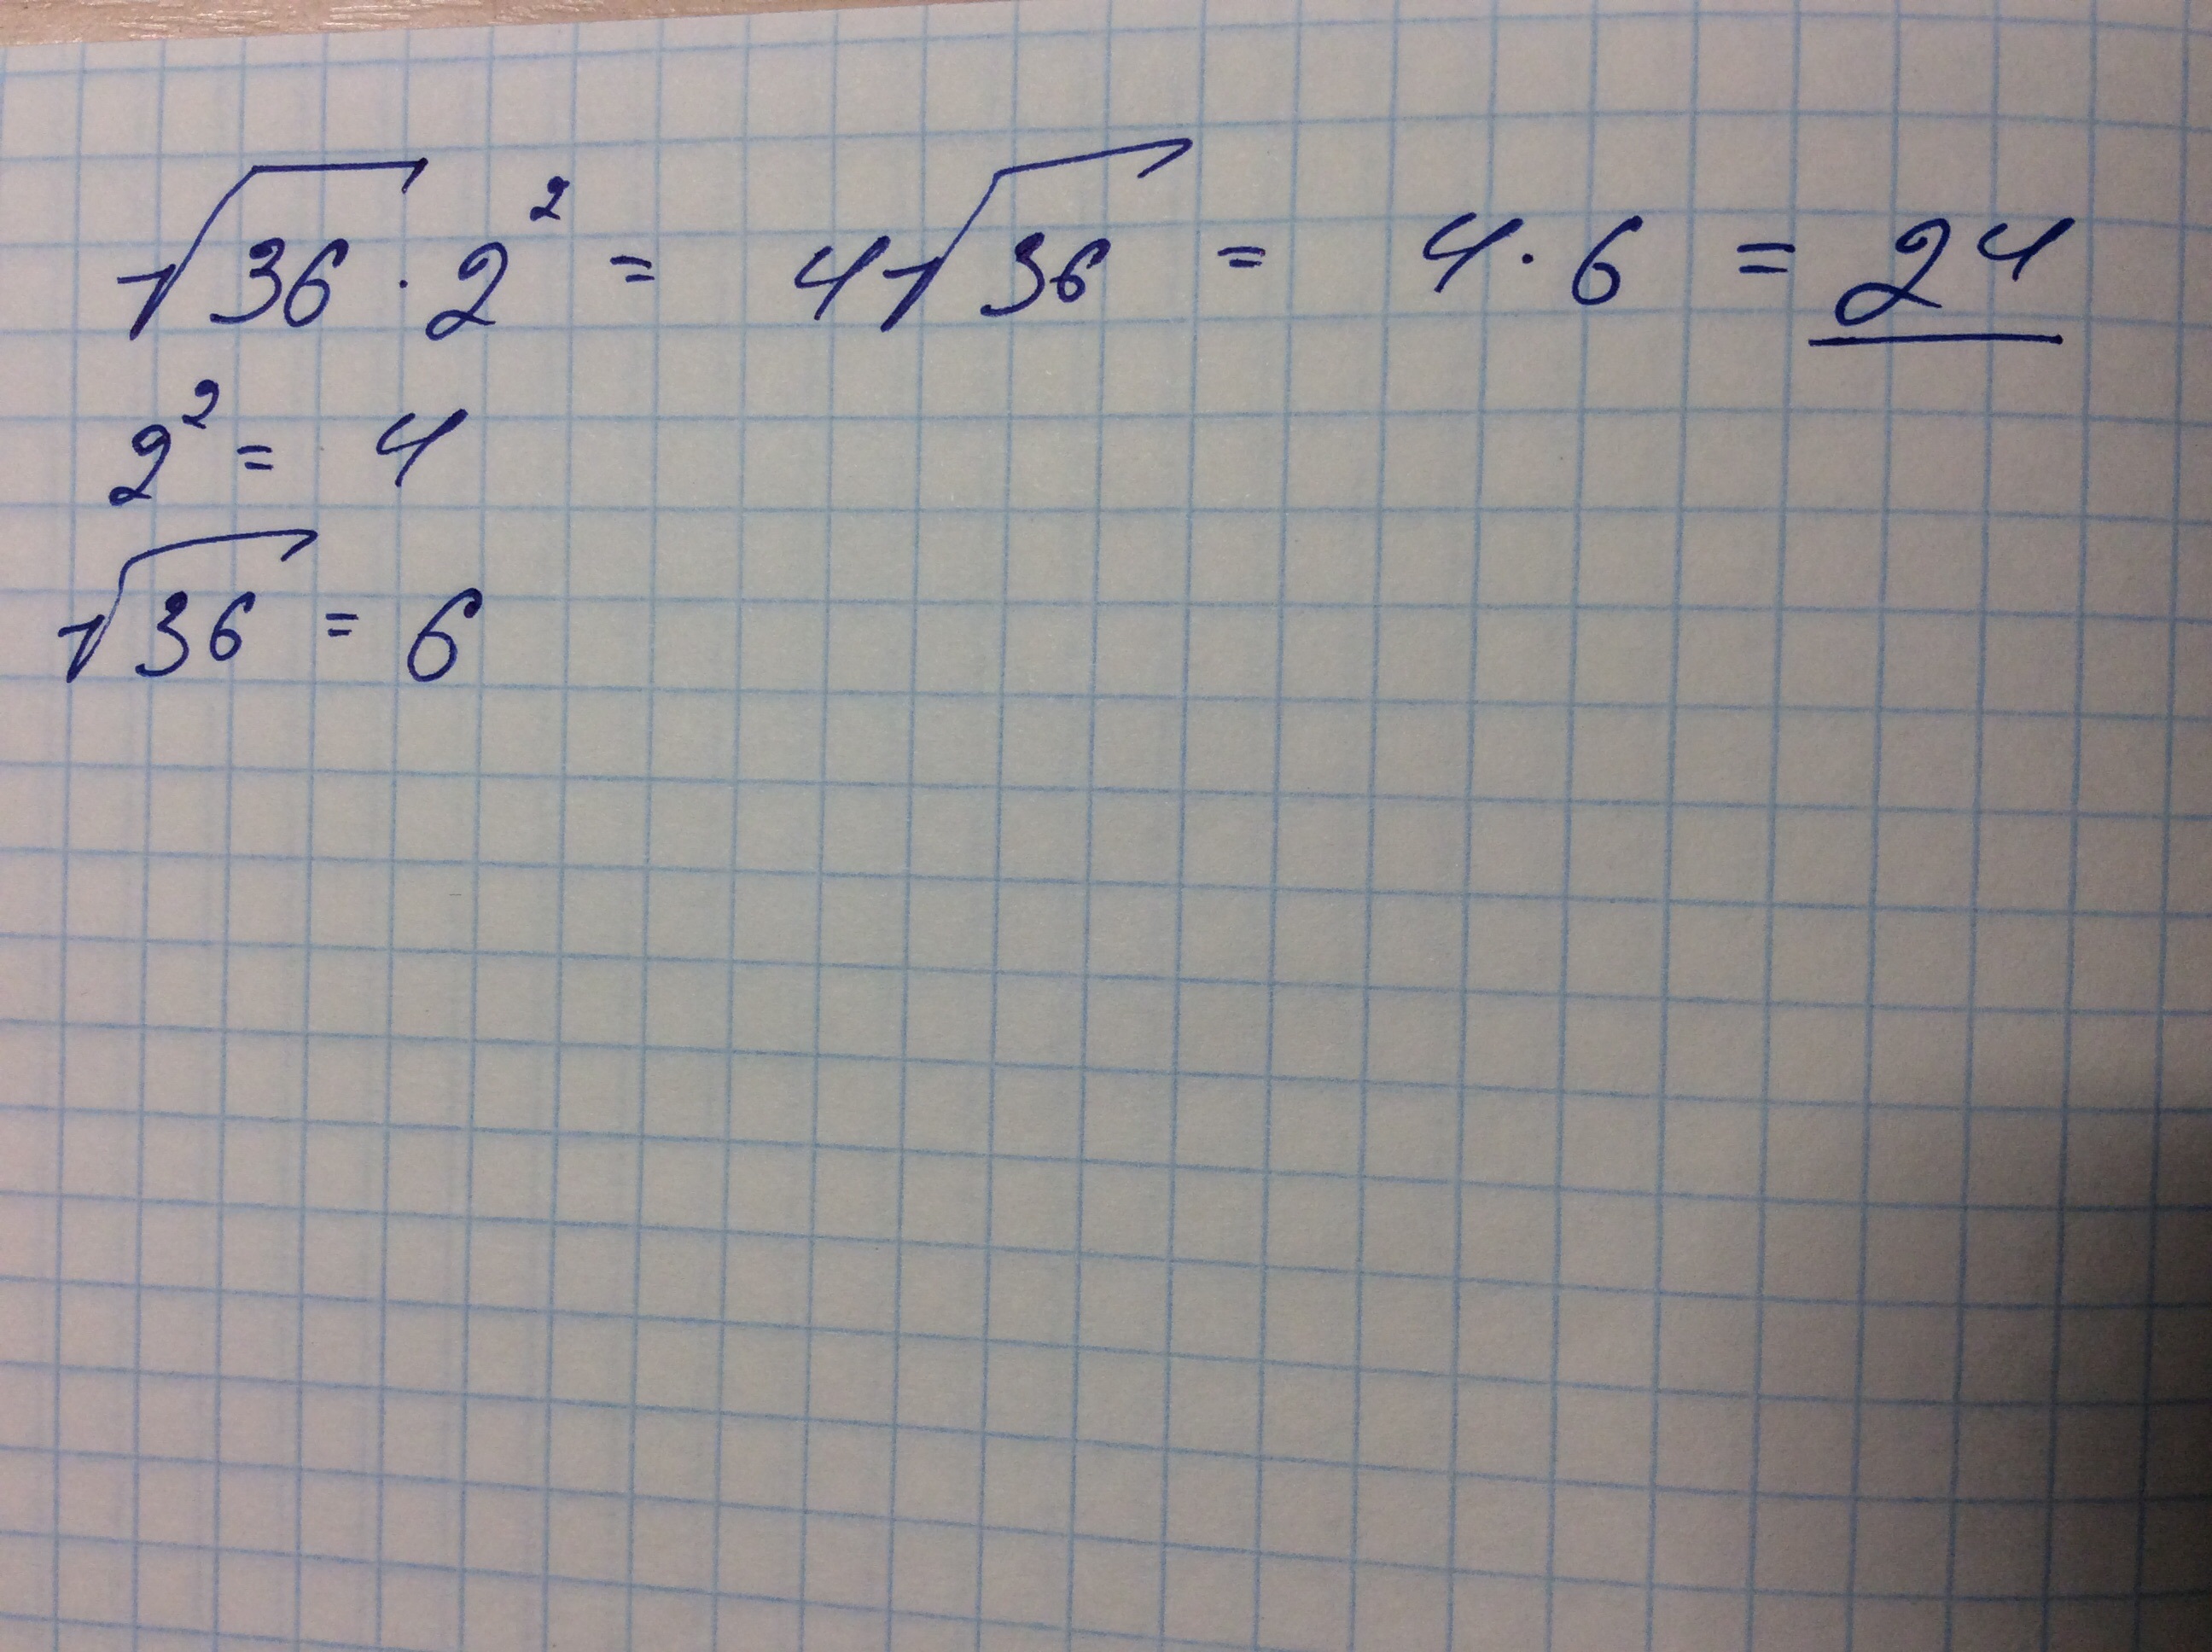 √36 · 2² = 4√36 = 4 · 6 = 24
2² = 4
√36 = 6